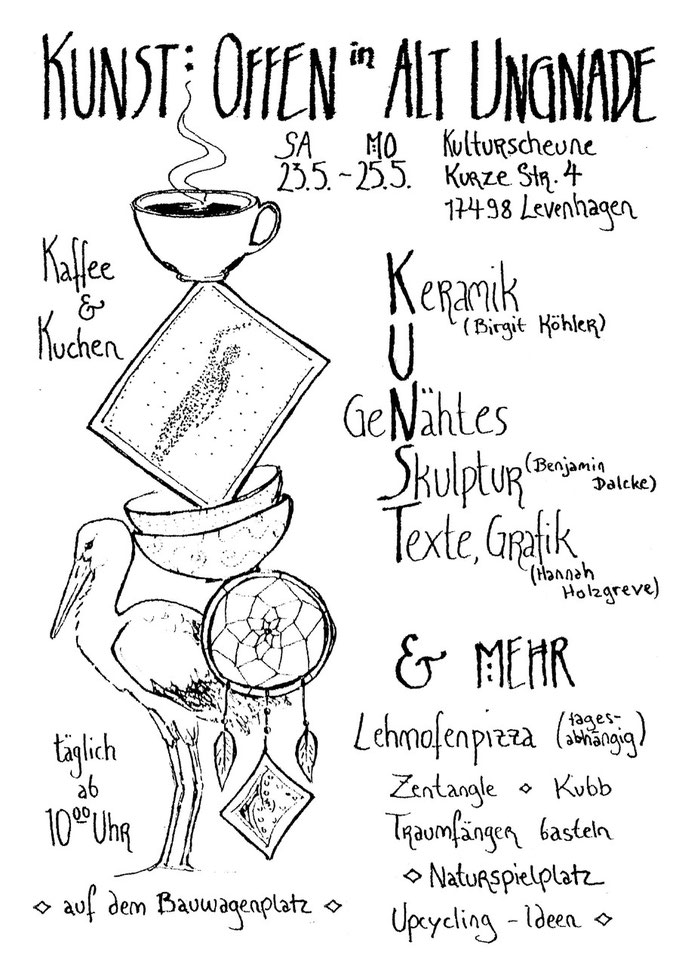 KUNST: OFFEN in ALT UNGNADE
SA MO
23.5. ~ 25.5.
Kulturscheune
Kurze Str. 4
17498 Levenhagen
Kaffee
&
Kuchen
Keramik
(Birgit Köhler)
U
GeNähtes
Skulptur (Benjamin
Dalcke)
Texte, Grafik
(Hannah
Holzgreve)
& MEHR
Lehmofenpizza (tages-
abhängig)
Zentangle ◇ Kubb
Traumfänger basteln
◇ Naturspielplatz
Upcycling - Ideen ◇
täglich
ab
10⁰⁰ Uhr
◇ auf dem Bauwagenplatz ◇